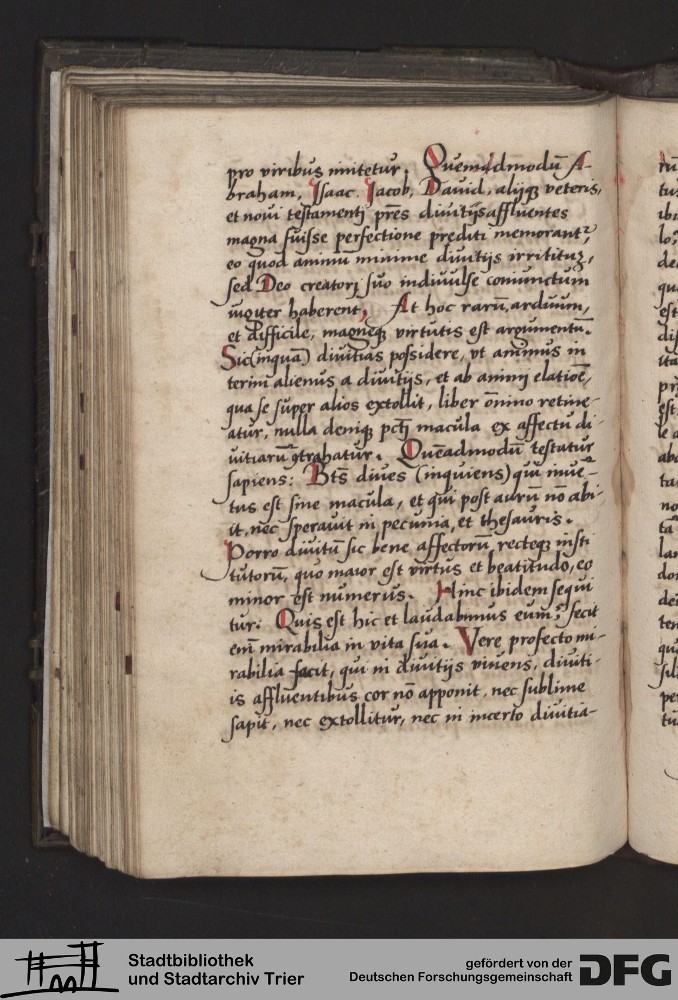 pro viribus imitetur. Quemadmodū A-
braham, Isaac, Jacob, David, alijq̨ veteris,
et novi testamentj prēs divitijs affluentes
magna fuisse perfectione prediti memorantr̃,
eo quod animu minime divitijs irrititu,
sed Deo creatorj suo indivulse coniunctum
iugiter haberent, At hoc rarū, arduum,
et difficile, magneq̨ virtutis est argumentū.
Sic (inquā) divitias possidere, vt animus in
terim alienus a divitijs, et ab animj elatiōe,
qua se super alios extollit, liber ōnino retine-
atur, nulla deniq̨ pctj macula ex affectu di-
vitiarū 9trahatur. Quēadmodū testatur
sapiens: Bts̄ dives (inquiens) qui invē-
tus est sine macula, et qui post aurū nō abi-
it, nec speravit in pecunia, et thesauris.
Porro divitū sic bene affectorū, recteq̨ insti
tutorū, quo maior est virtus et beatitudo, eo
minor est numerus. Hinc ibidem sequi
tur: Quis est hic et laudabimus eum? fecit
em̄ mirabilia in vita sua. Vere profecto mi-
rabilia facit, qui in divitijs vivens, diviti-
is affluentibus cor nō apponit, nec sublime
sapit, nec extollitur, nec in incerto divitia-
Stadtbibliothek
und Stadtarchiv Trier
gefördert von der
Deutschen Forschungsgemeinschaft
DFG